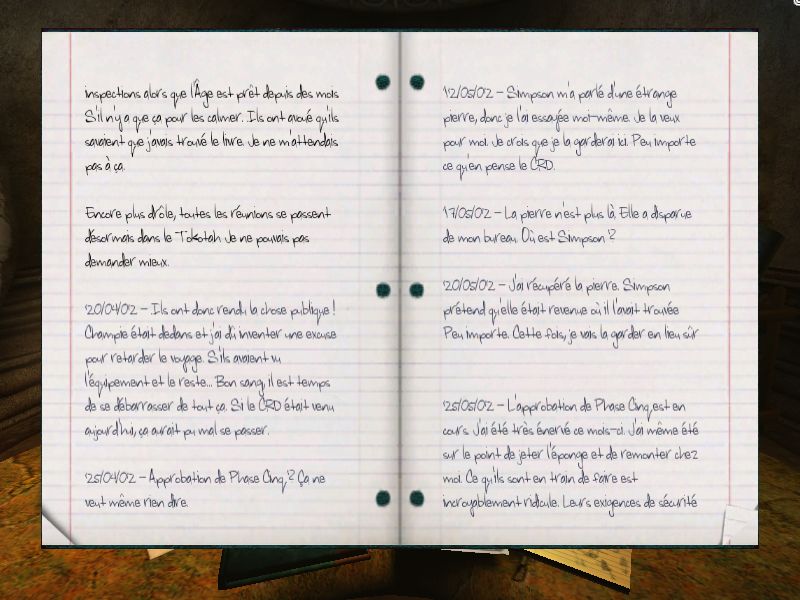 inspections alors que l'Âge est prêt depuis des mois
S'il n'y a que ça pour les calmer. Ils ont avoué qu'ils
savaient que j'avais trouvé le livre. Je ne m'attendais
pas à ça.
Encore plus drôle, toutes les réunions se passent
désormais dans le Tokotah Je ne pouvais pas
demander mieux.
20/04/02 – Ils ont donc rendu la chose publique !
Champie était dedans et j'ai dû inventer une excuse
pour retarder le voyage. S'ils avaient vu
l'équipement et le reste... Bon sang, il est temps
de se débarrasser de tout ça. Si le CRD était venu
aujourd'hui, ça aurait pu mal se passer.
25/04/02 – Approbation de Phase Cinq ? Ça ne
veut même rien dire.
12/05/02 – Simpson m'a parlé d'une étrange
pierre, donc je l'ai essayée moi-même. Je la veux
pour moi. Je crois que je la garderai ici. Peu importe
ce qu'en pense le CRD.
17/05/02 – La pierre n'est plus là. Elle a disparue
de mon bureau. Où est Simpson ?
20/05/02 – J'ai récupéré la pierre. Simpson
prétend qu'elle était revenue où il l'avait trouvée
Peu importe. Cette fois, je vais la garder en lieu sûr
25/05/02 – L'approbation de Phase Cinq est en
cours. J'ai été très énervé ce mois-ci. J'ai même été
sur le point de jeter l'éponge et de remonter chez
moi. Ce qu'ils sont en train de faire est
incroyablement ridicule. Leurs exigences de sécurité